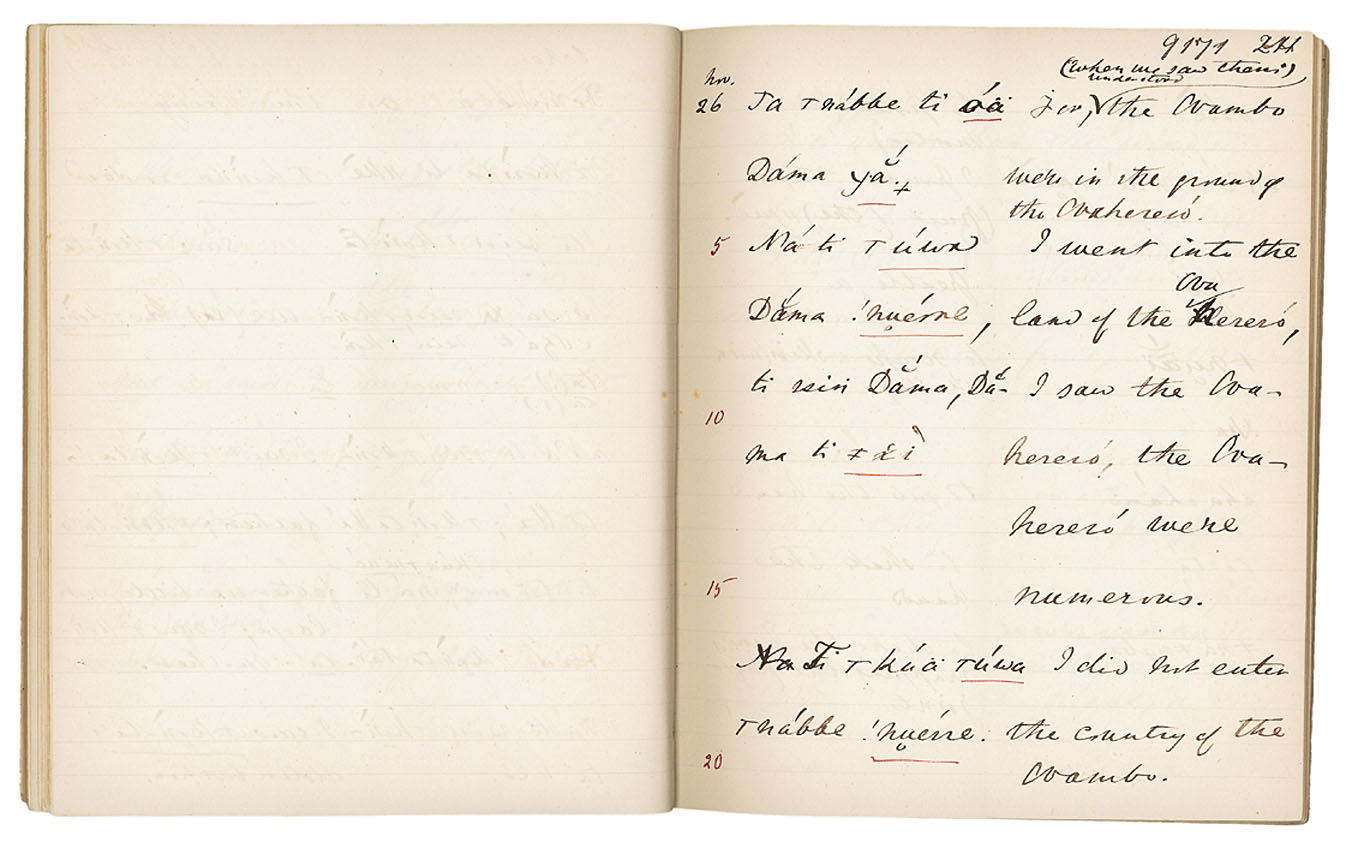 9171
(when we saw them)
understood
nov.
26 Ta тnábbe ti óä for, the Ovambo
Dáma yǎ.+ were in the ground of
the Ovahereró.
5 Ná ti тúwa I went into the
Ova
Dǎma !nuérre, land of the hereró,
ti ssin Dǎma, Dǎ- I saw the Ova-
10
ma ti хxi hereró, the Ova-
hereró were
15 numerous.
Ti т kúi тúwa I did not enter
тnábbe !nuérre. the country of the
20 Ovambo.